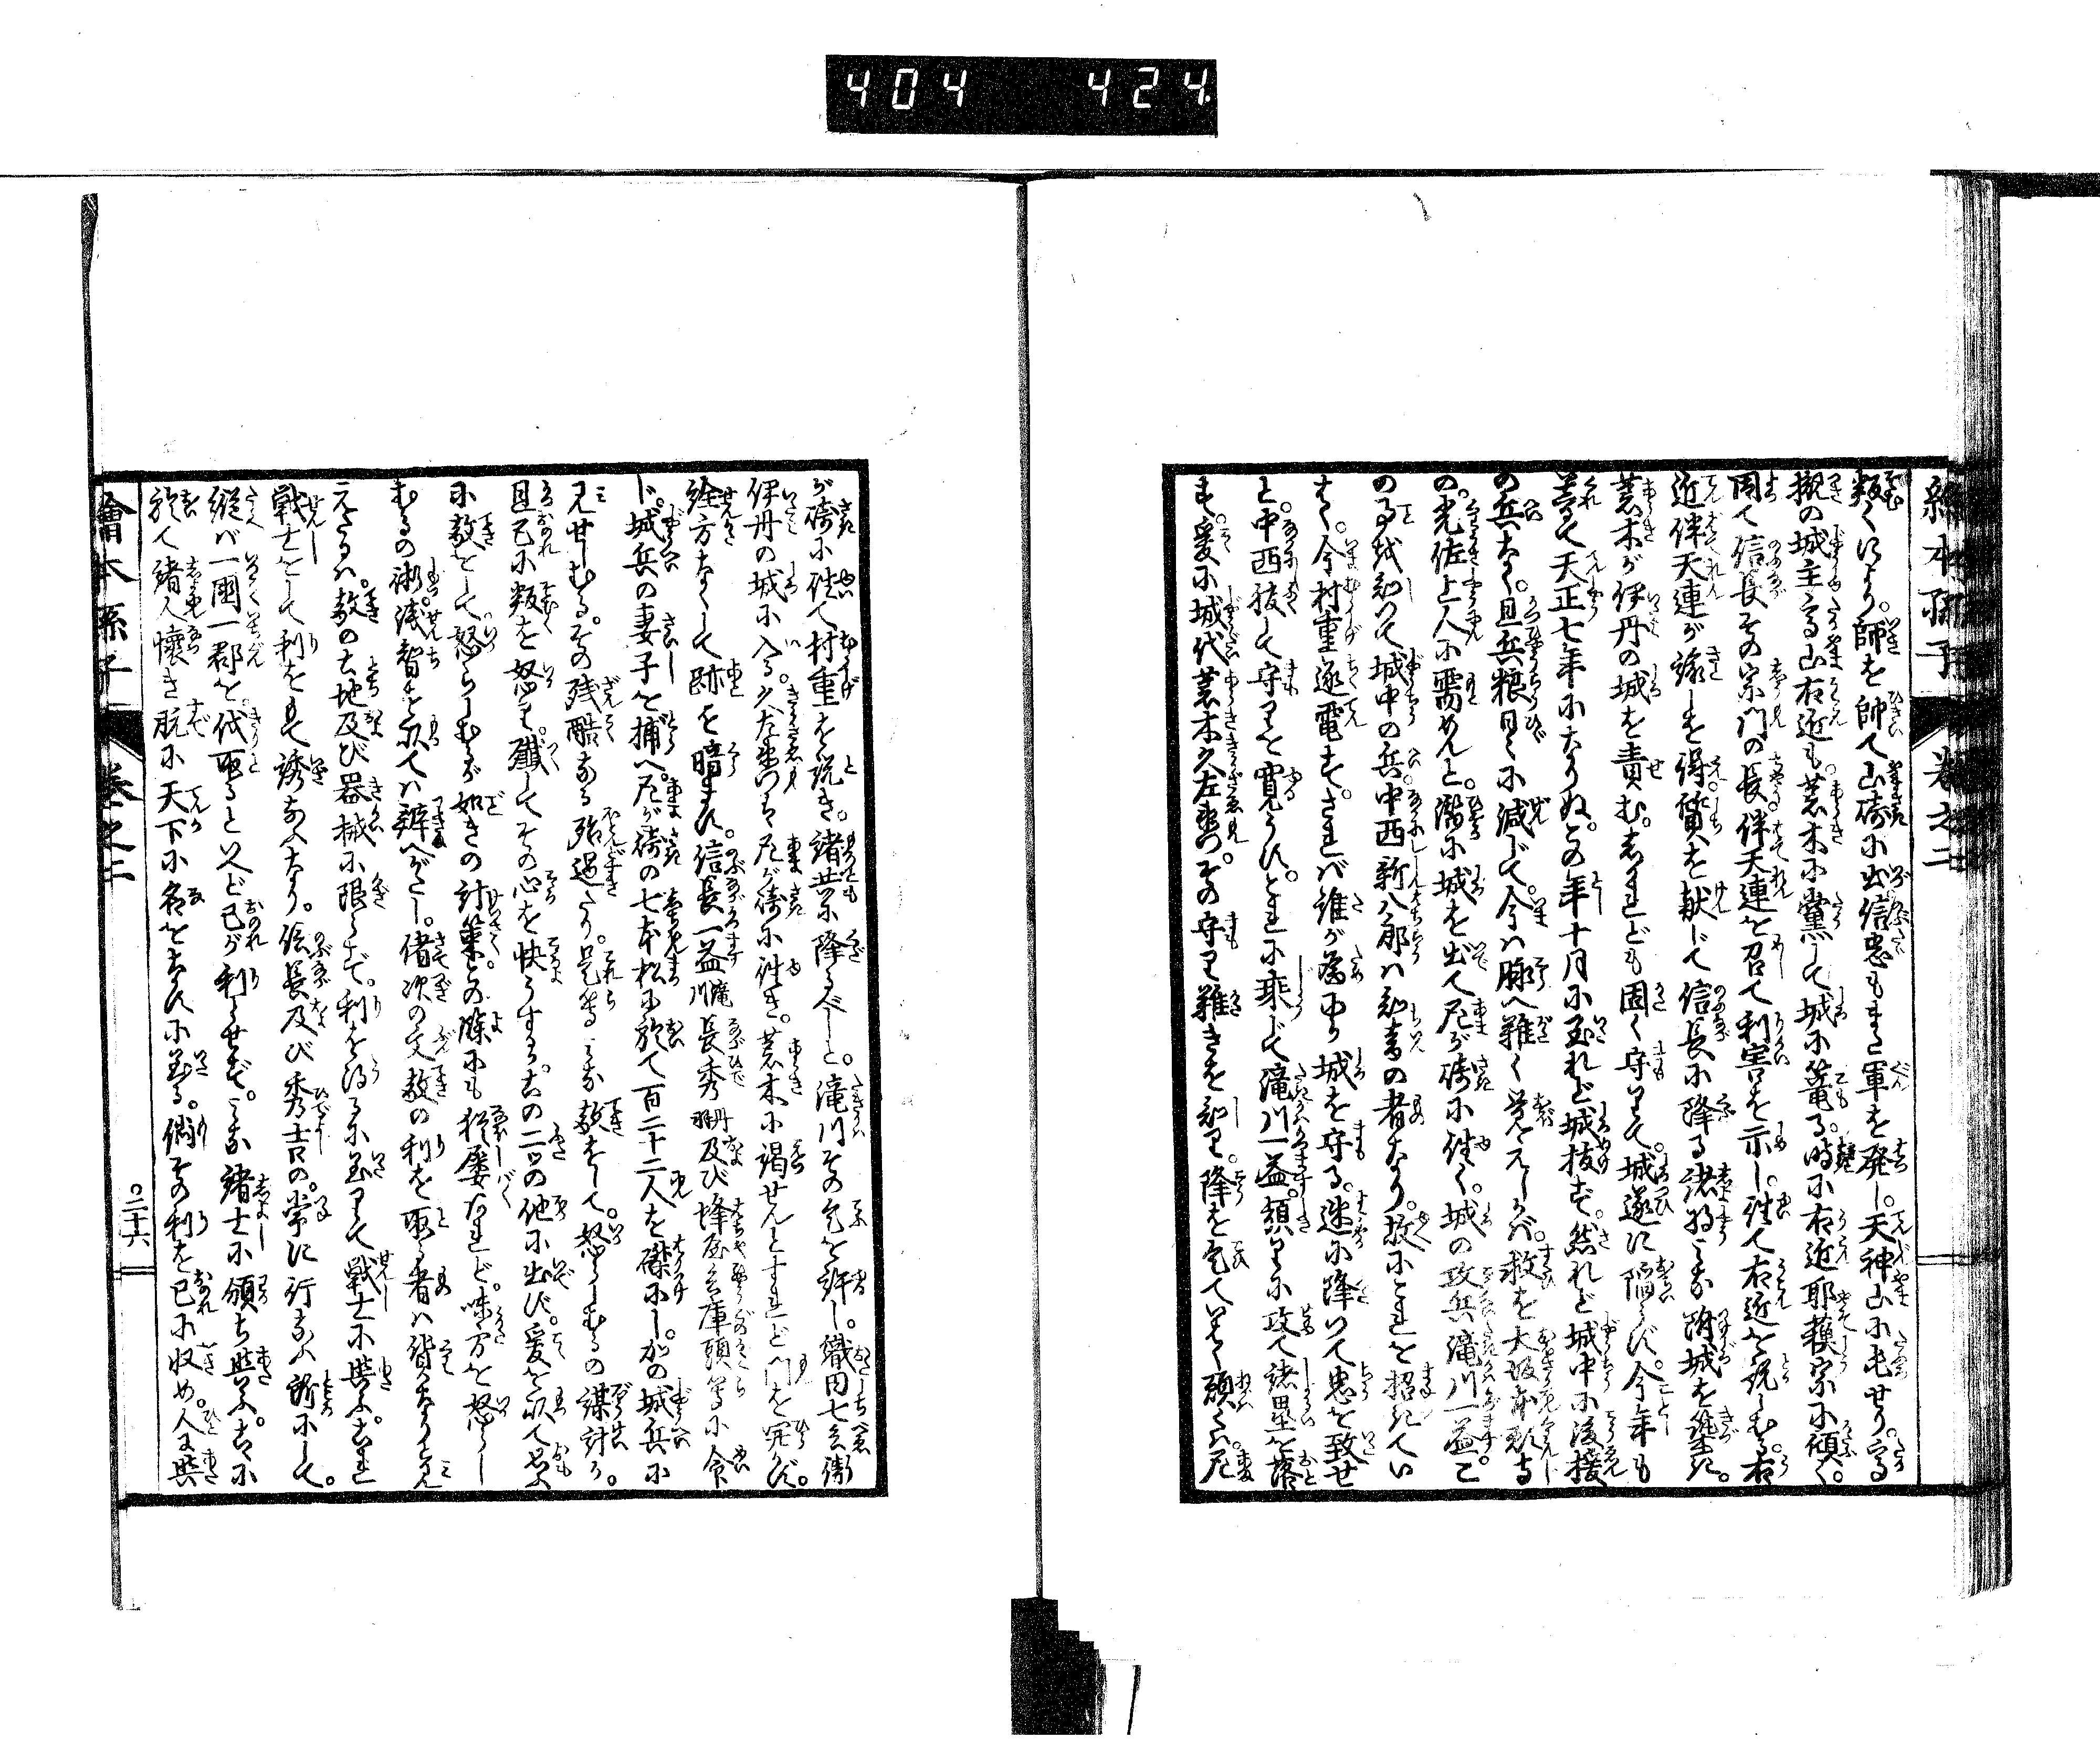 404 424
繪本孫子 巻之二
叛くにより。師を帥て山崎に出信忠もまた軍を発し。天神山に屯せり。高
槻の城主高山右近も。荒木に黨して城に篭る。時に右近耶蘓宗に傾く。
因て信長その宗門の長伴天連を召て利害を示し。往て右近を説しむる。右
近伴天連が諭しを得。質を献じて信長に降る諸将みな附城を築き。
荒木が伊丹の城を責む。されども固く守りて。城遂に陥らず。今年も
暮て天正七年になりぬ。この年十月に至れど城抜ず。然れど城中に後援
の兵なく。且兵粮日々に減じて。今は勝へ難く覚えしかば。救を大坂本願寺
の。光佐上人に需めんと。潜に城を出て尼が崎に往く。城の攻兵滝川一益。こ
の事を知つて城中の兵。中西新八郎は知音の者なり。故にこれを招きてい
はく。今村重逐電す。されば誰が為にか城を守る。速に降つて忠を致せ
と。中西彼して守りを寛うす。これに乗じて滝川一益。頻りに攻て諸塁を落
す。爰に城代荒木久左衛門。その守り難きを知り。降を乞ていはく願くは尼
が崎に往て村重を説き。諸共に降るべしと。滝川その乞を許し。織田七兵衛
伊丹の城に入る。久左衛門は尼が崎に往き。荒木に謁せんとすれど門を開かず。
詮方なくして跡を暗ます。信長一益滝川長秀丹羽及び蜂屋兵庫頭等に命
じ。城兵の妻子を捕へ。尼が崎の七本松に於て百二十二人を磔にし。かの城兵に
見せしむる。その残酷なる殆過たり。是等みな敵をして。怒らしむるの謀計か。
且己に叛を怒り。殲してその心を快うするか。この二つの他に出ず。爰を以て思ふ
に敵をして。怒らしむるが如きの計策。この餘にも猶屡なれど。味方を怒らし
むるの術。浅智を以ては辨へがたし。偖次の文敵の利を取る者は貨なりと見
えたるは。敵の土地及び器械に限らず。利を得るに至りて戦士に與ふ。これ
戦士をして利を見て誘なふなり。信長及び秀吉の。常に行なふ所にして。
縦ば一國一郡を。伐取るといへど己が利とせず。みな諸士に頒ち與ふ。古に
於て諸人懐き既に天下に名をなすに至る。倘その利を己に收め。人に與
繪本孫子 巻之二 〇二十六